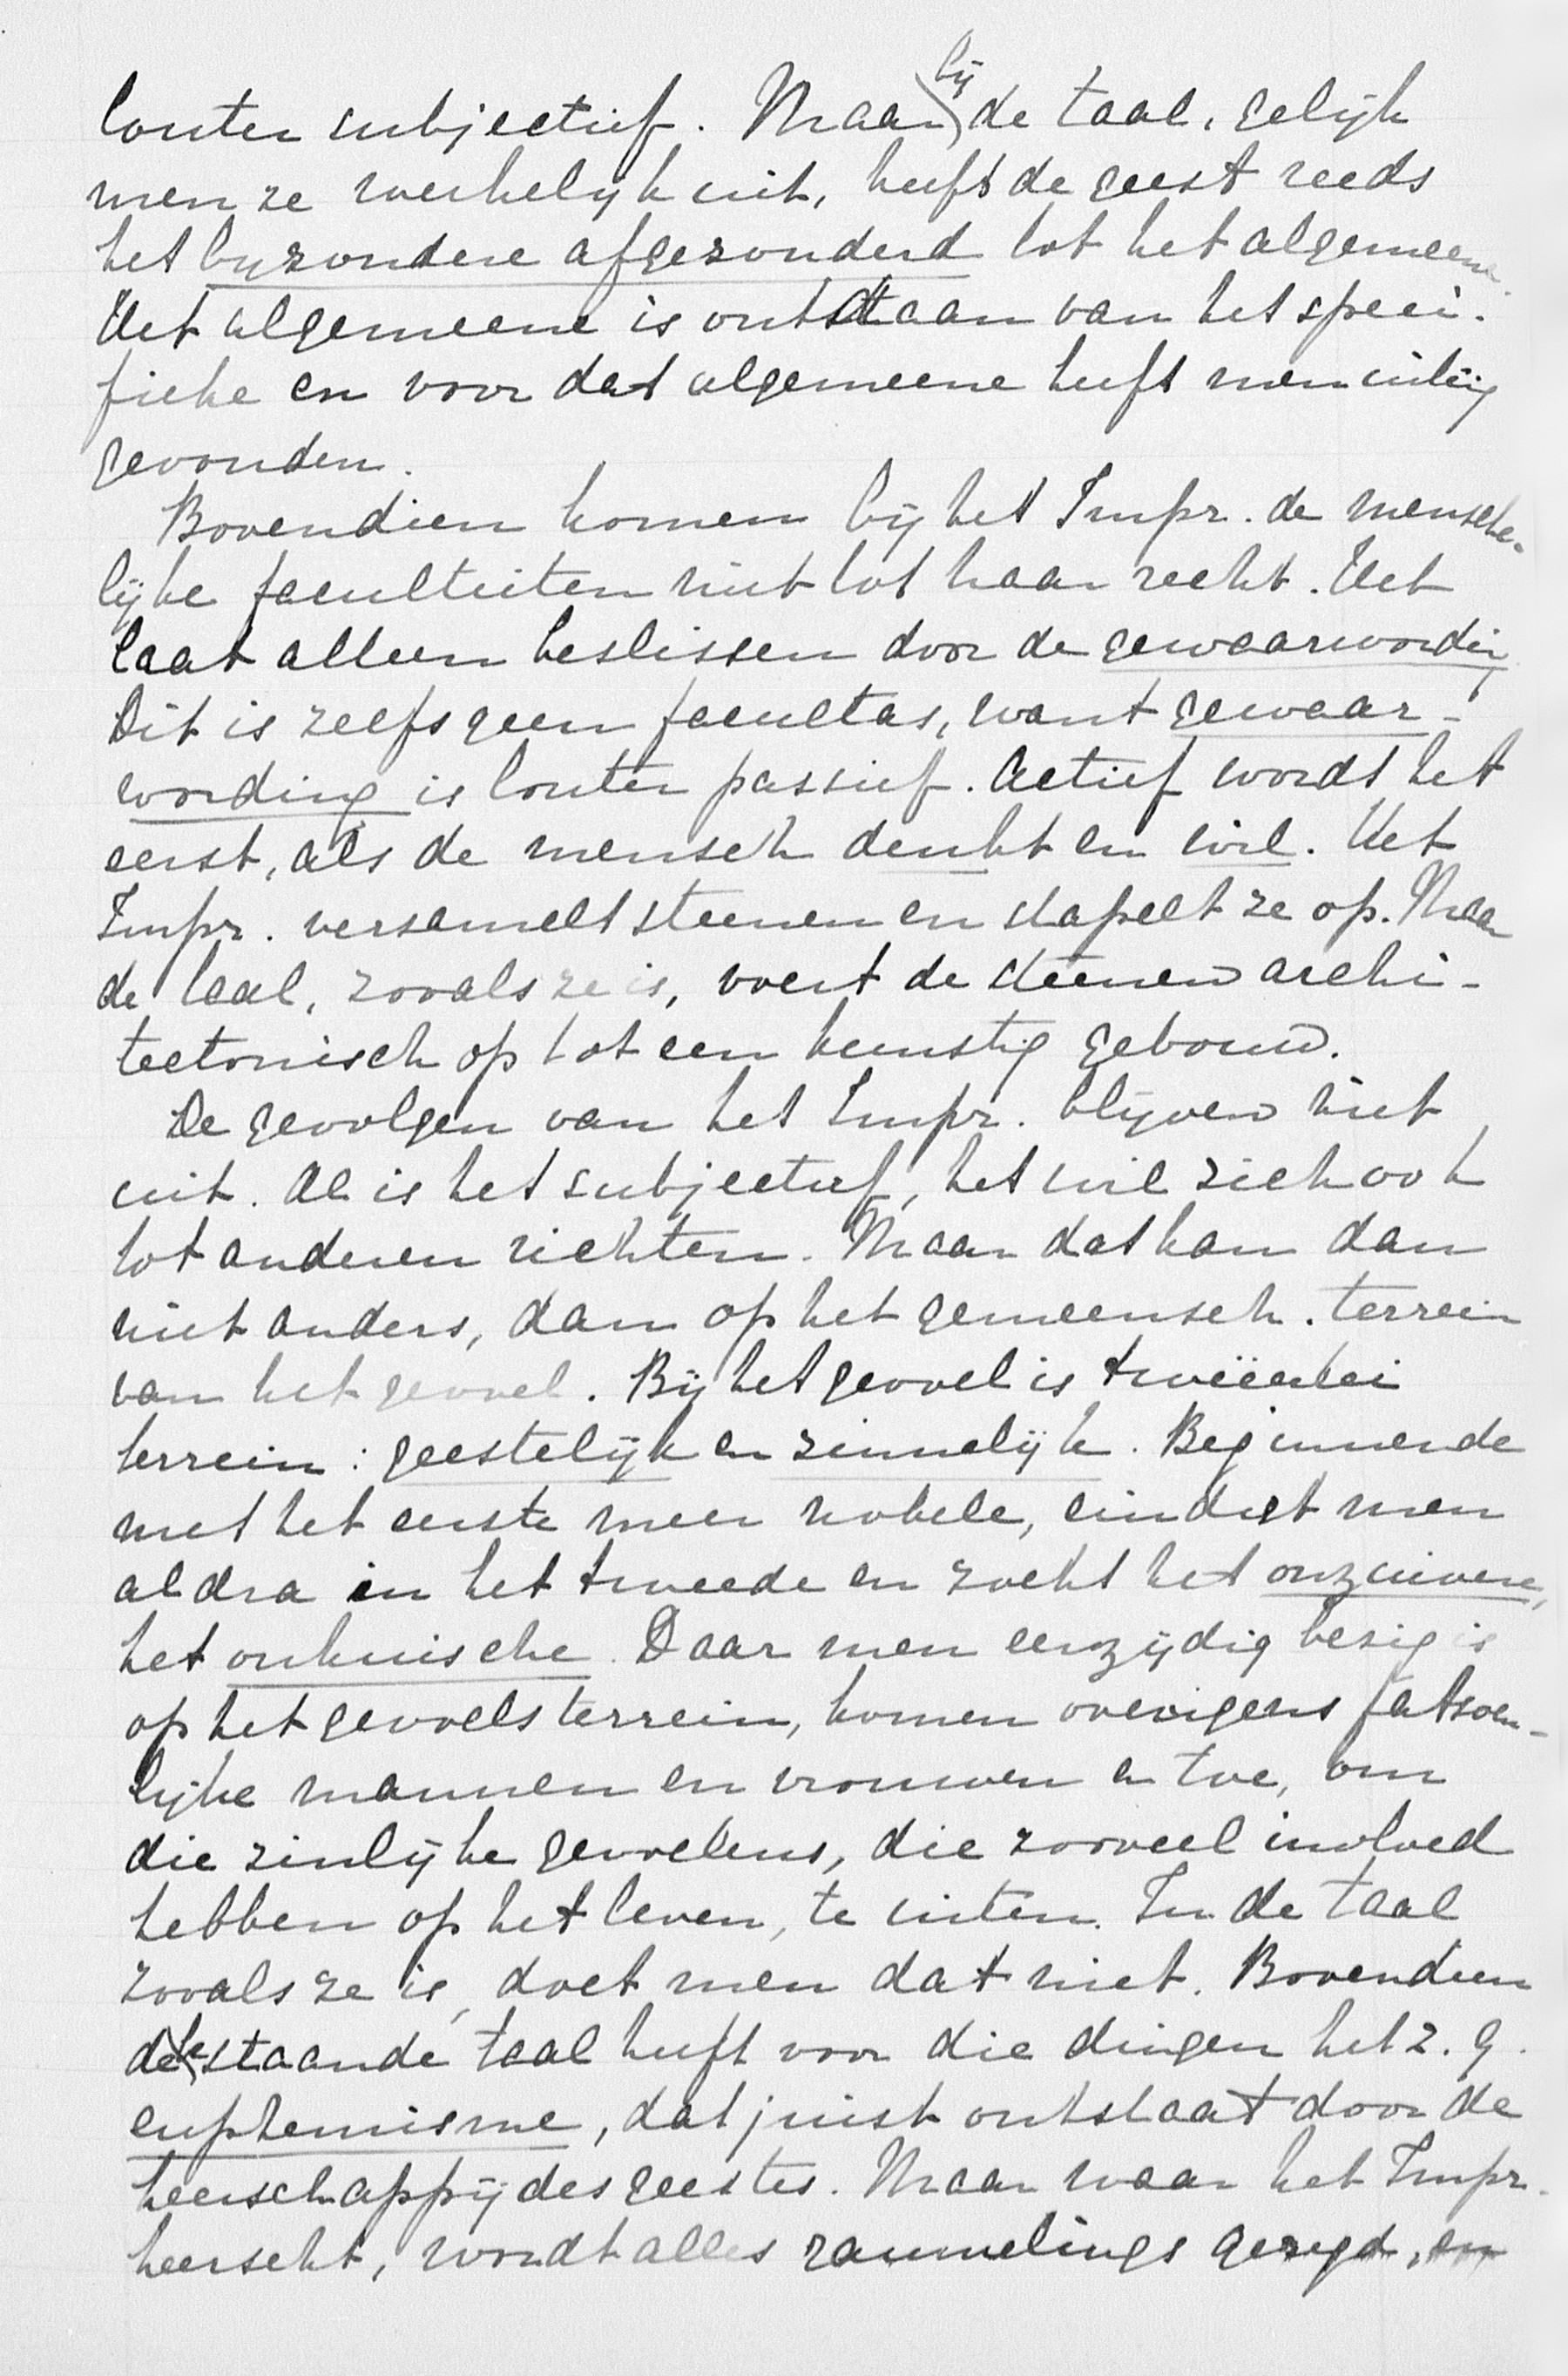 louter subjectief. Maar bij de taal, gelijk
men ze werkelijk uit, heeft de geest reeds
het byzondere afgezonderd tot het algemeene.
Het algemeene is ontstaan van het speci-
fieke en voor dat algemeene heeft men uiting
gevonden.
Bovendien komen bij het Impr. de mensche-
lijke faculteiten niet tot haar recht. Het
laat alleen beslissen door de gewaarwording.
Dit is zelfs geen facultas, want gewaar-
wording is louter passief. Actief wordt het
eerst, als de mensch denkt en wil. Het
Impr. verzamelt steenen en stapelt ze op. Maar
de taal, zooals ze is, voert de steenen archi-
tectonisch op tot een kunstig gebouw.
De gevolgen van het Impr. blijven niet
uit. Al is het subjectief, het wil zich ook
tot anderen richten. Maar dat kan dan
niet anders, dan op het gemeensch. terrein
van het gevoel. Bij het gevoel is tweëerlei
terrein: geestelijk en zinnelijk. Beginnende
met het eerste meer nobele, eindigt men
aldra in het tweede en zoekt het onzuivere,
het onkuische. Daar men eenzijdig bezig is
op het gevoelsterrein, komen overigens fatsoen-
lijke mannen en vrouwen er toe, om
die zinlijke gevoelens, die zooveel invloed
hebben op het leven, te uiten. In de taal
zooals ze is, doet men dat niet. Bovendien
de bestaande taal heeft voor die dingen het z.g.
euphemisme, dat juist ontstaat door de
heerschappij des geestes. Maar waar het Impr.
heerscht, wordt alles rauwelings gezegd, en